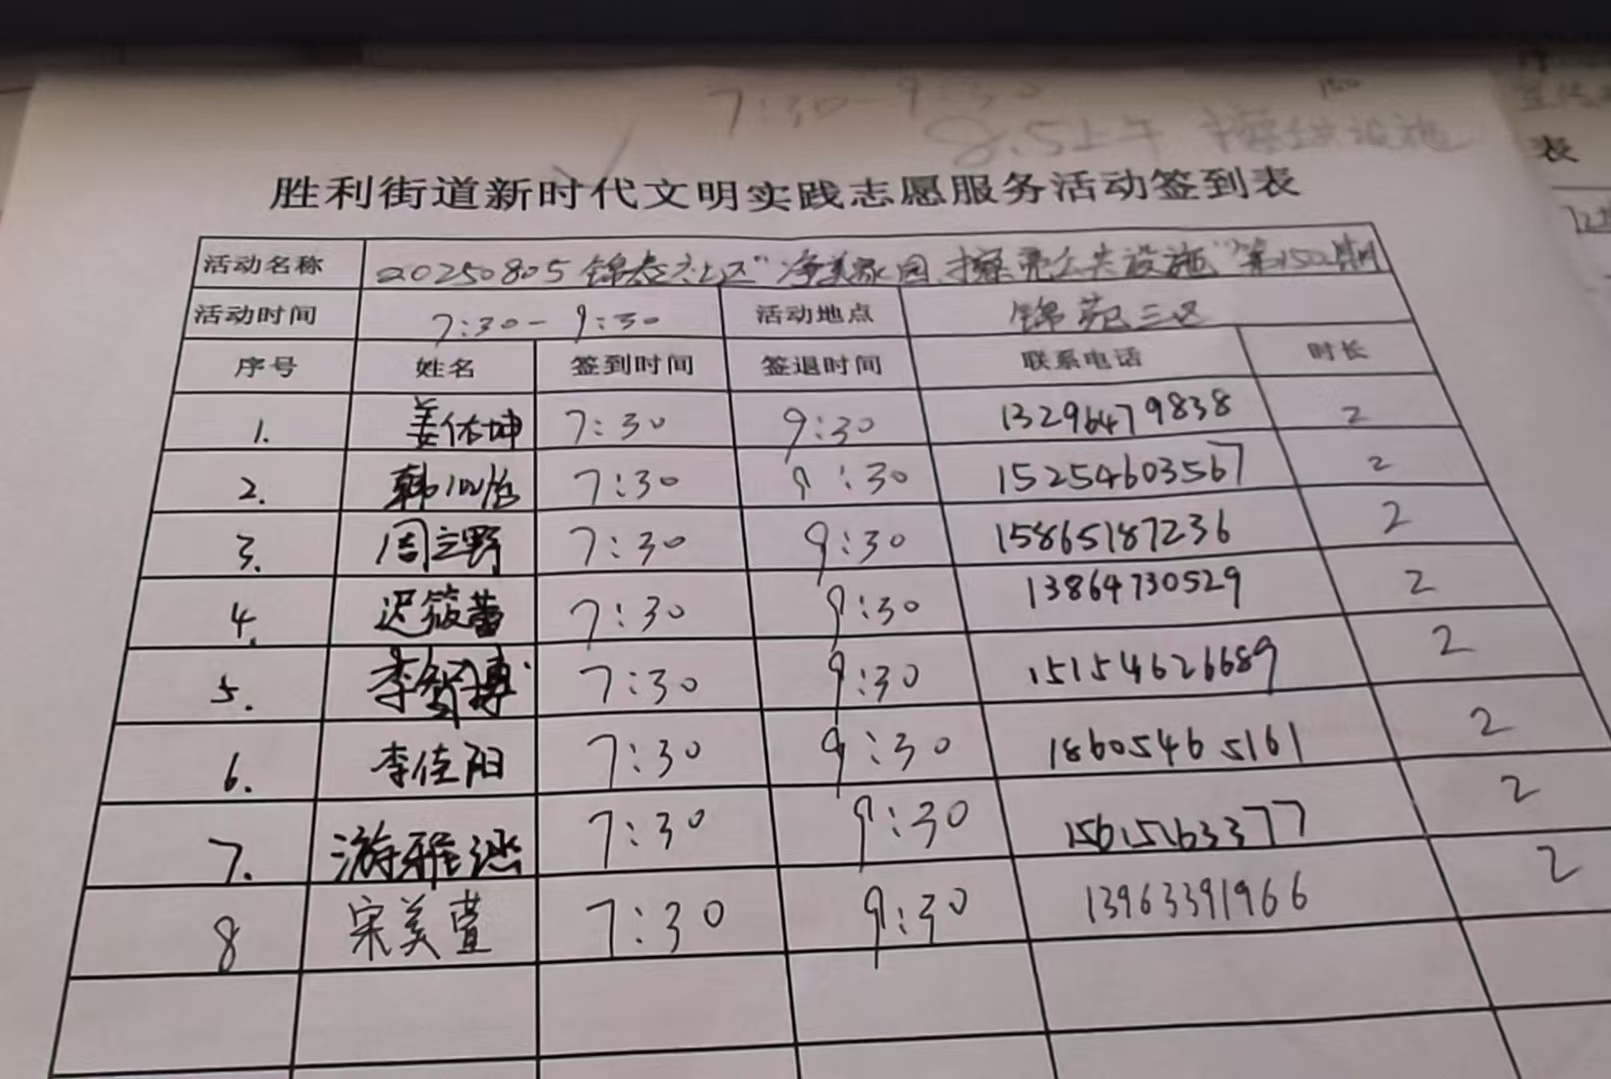 7:30-9:30
150
8.5上午 擦公共设施
表
胜利街道新时代文明实践志愿服务活动签到表
活动名称 20250805锦苑社区"净美家园,擦亮公共设施"第150期
活动时间 7:30-9:30 活动地点 锦苑三区
序号 姓名 签到时间 签退时间 联系电话 时长
1. 姜佑坤 7:30 9:30 13296479838 2
2. 韩 7:30 9:30 15254603567 2
3. 周立野 7:30 9:30 15865187236 2
4. 迟筱蕾 7:30 9:30 13864730529 2
5. 李智博 7:30 9:30 15154626689 2
6. 李佳阳 7:30 9:30 18605465161 2
7. 游雅 7:30 9:30 15615263377 2
8 宋美萱 7:30 9:30 13963391966 2